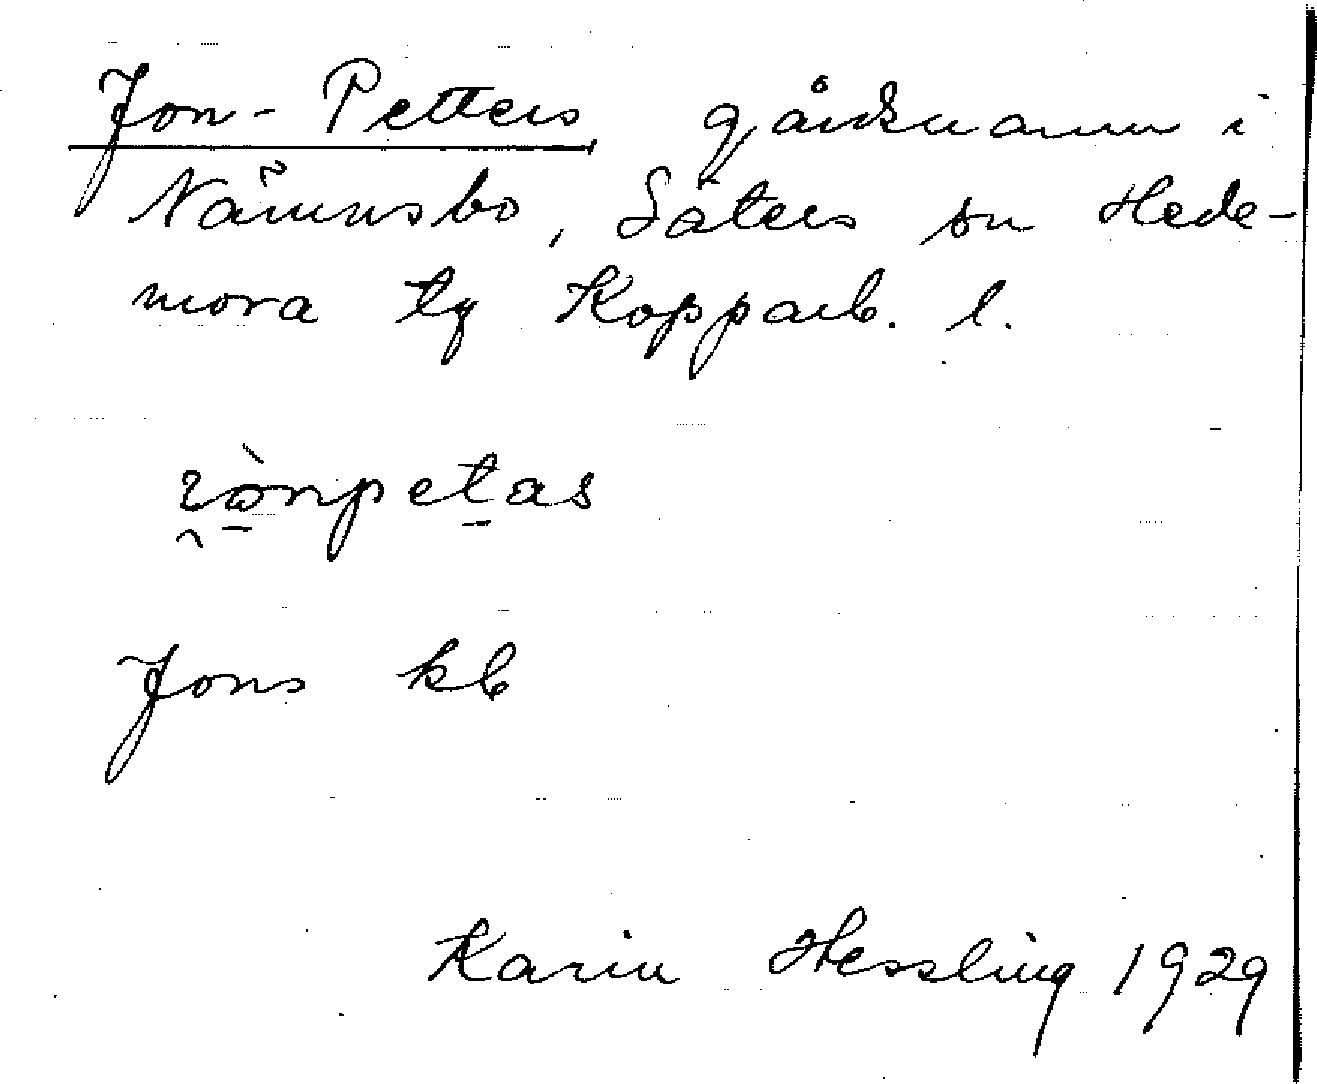 Jon-Petters gårdsnamn i
Nämnsbo, Säters sn Hede-
mora tg Kopparb. l.
Jons kb
Karin Hessling 1929